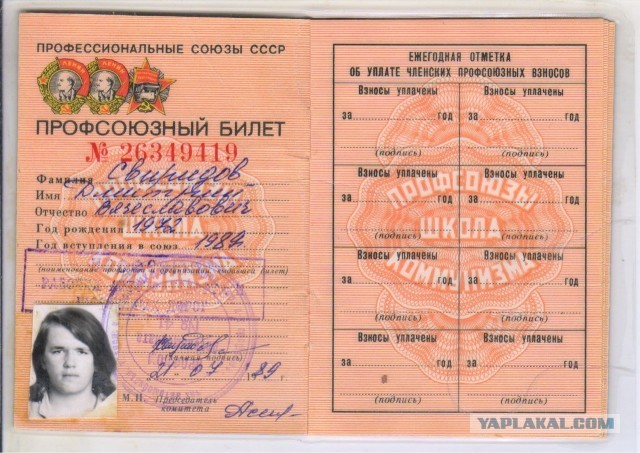 ПРОФЕССИОНАЛЬНЫЕ СОЮЗЫ СССР
ПРОФСОЮЗНЫЙ БИЛЕТ
№ 26349419
Фамилия Свиридов
Имя Дмитрий
Отчество Вячеславович
Год рождения 1972
Год вступления в союз 1989
(личная подпись)
21 07 1989 г.
М.П. Председатель
комитета
ЕЖЕГОДНАЯ ОТМЕТКА
ОБ УПЛАТЕ ЧЛЕНСКИХ ПРОФСОЮЗНЫХ ВЗНОСОВ
Взносы уплачены Взносы уплачены
за год за год
(подпись) (подпись)
Взносы уплачены Взносы уплачены
за год за год
(подпись) (подпись)
Взносы уплачены Взносы уплачены
за год за год
(подпись) (подпись)
Взносы уплачены Взносы уплачены
за год за год
(подпись) (подпись)
ПРОФСОЮЗЫ
ШКОЛА
КОММУНИЗМА
YAPLAKAL.COM